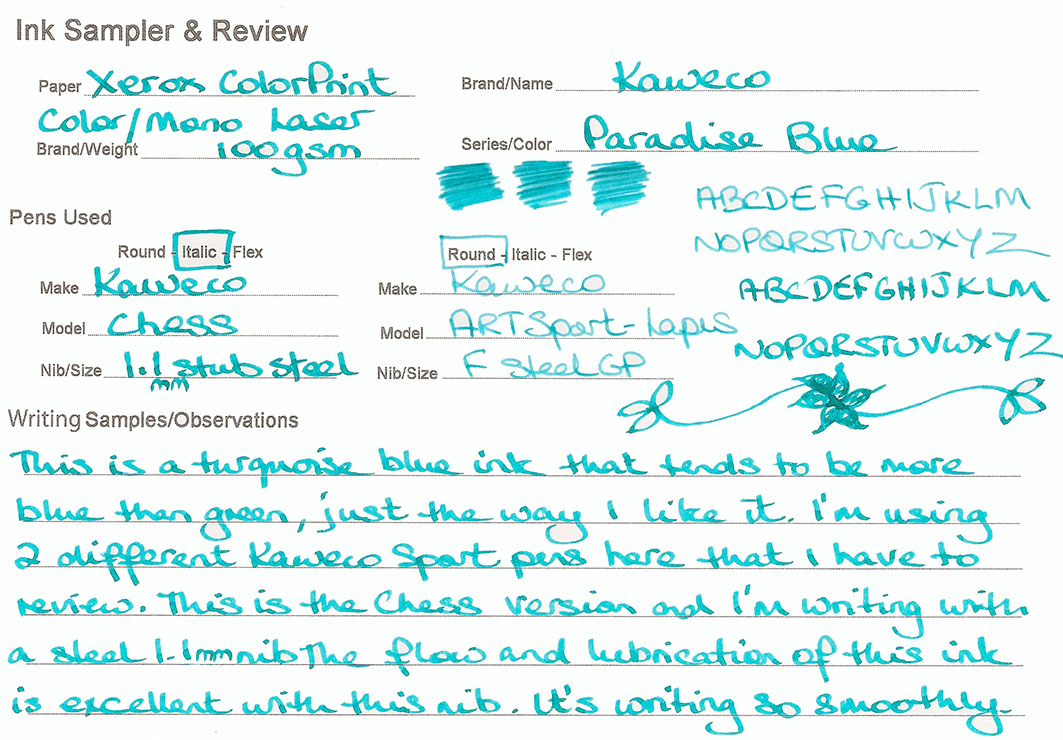 Ink Sampler & Review
Paper Xerox ColorPrint
Color/Mono Laser
Brand/Weight 100gsm
Brand/Name Kaweco
Series/Color Paradise Blue
ABCDEFGHIJKLM
NOPQRSTUVWXYZ
ABCDEFGHIJKLM
NOPQRSTUVWXYZ
Pens Used
Round - Italic - Flex
Make Kaweco
Model Chess
Nib/Size 1.1 stub steel
mm
Round - Italic - Flex
Make Kaweco
Model ART Sport - Lapis
Nib/Size F Steel GP
Writing Samples/Observations
This is a turquoise blue ink that tends to be more
blue than green, just the way I like it. I'm using
2 different Kaweco Sport pens here that I have to
review. This is the Chess version and I'm writing with
a steel 1.1mm nib The flow and lubrication of this ink
is excellent with this nib. It's writing so smoothly.